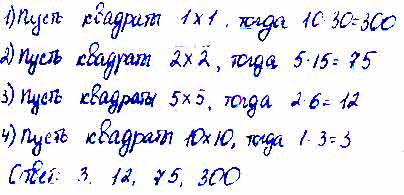 1) Пусть квадраты 1×1, тогда 10·30=300
2) Пусть квадраты 2×2, тогда 5·15=75
3) Пусть квадраты 5×5, тогда 2·6=12
4) Пусть квадраты 10×10, тогда 1·3=3
Ответ: 3, 12, 75, 300